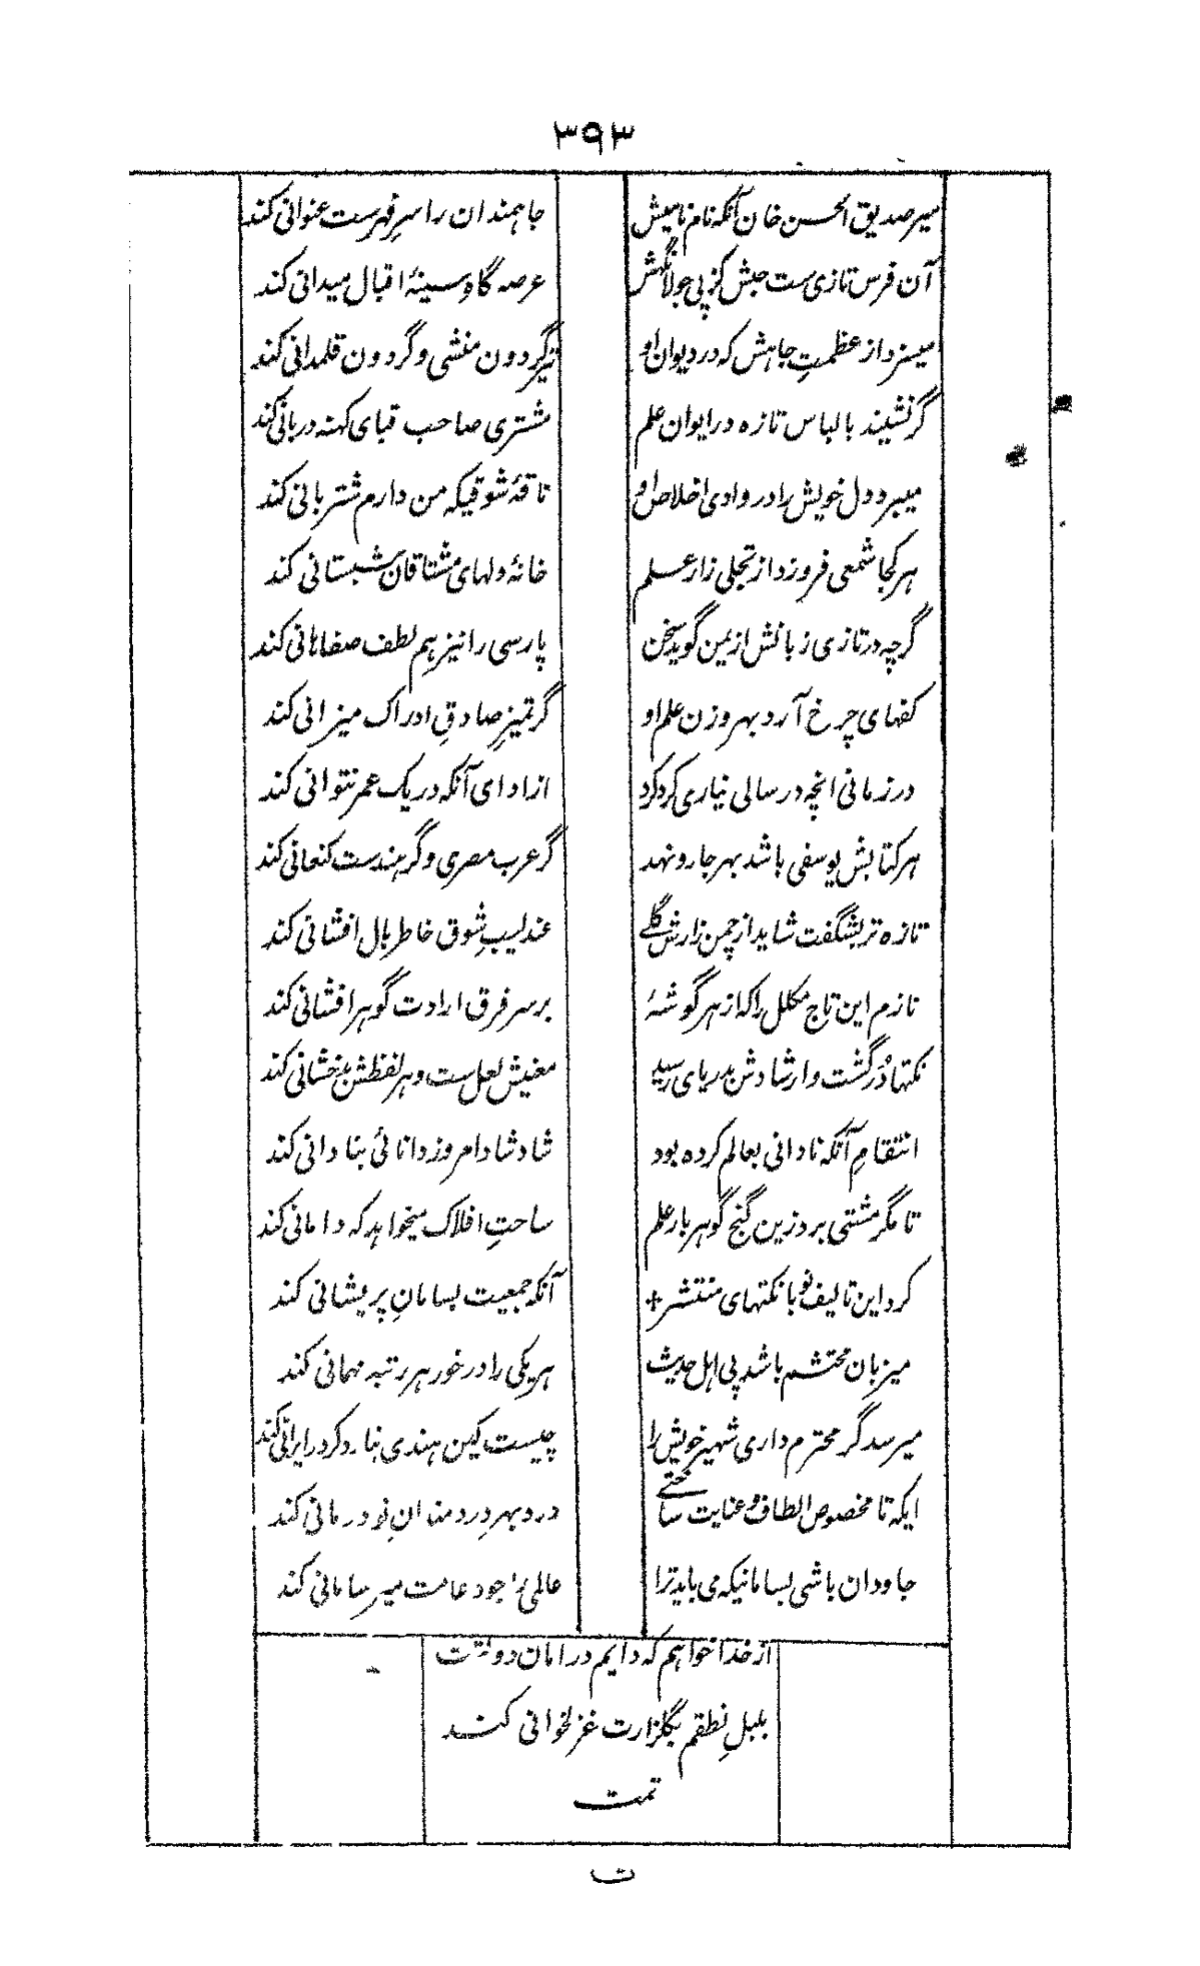 ۳۹۳
میر صدیق الحسن خان آنکه نام نامیش
جاهمندان را سرِ فهرست عنوانی کند
آن فرس تازی ست جبش کز پی جولانگهش
عرصه گاهِ سینهٔ اقبال میدانی کند
میسزد از عظمتِ جاهش که در دیوان او
تیرِ گردون منشی و گردون قلمدانی کند
گر نشیند با لباس تازه در ایوان علم
مشتری صاحب قبای کهنه دربانی کند
میبرد دل خویش را در وادی اخلاص او
ناقهٔ شوقیکه من دارم شتربانی کند
هر کجا شمعی فروزد از تجلی زار علم
خانهٔ دلهای مشتاقان شبستانی کند
گرچه در تازی زبانش از یمن گوید سخن
پارسی را نیز هم لطف صفاهانی کند
کفهای چرخ آرد بهر وزن علم او
گر تمیزِ صادقِ ادراک میزانی کند
در زمانی انچه در سالی نیاری کرد کرد
از ادای آنکه در یک عمر نتوانی کند
هر کتابش یوسفی باشد بهر جا رو نهد
گر عرب مصری و گر هندست کنعانی کند
تازه تر بشگفت شاید از چمن زارش گلے
عندلیبِ شوق خاطر بال افشانی کند
نازم این تاج مکلل را که از هر گوشهٔ
بر سر فرق ارادت گوهر افشانی کند
نکتها دُر گشت و ارشادش بدریای رسید
معنیش لعل ست و هر لفظش بدخشانی کند
انتقامِ آنکه نادانی بعالم کرده بود
شاد شاد امروز دانائی بنادانی کند
تا مگر مشتی برد زین گنج گوهر بار علم
ساحتِ افلاک میخواهد که دامانی کند
کرد این تالیف نو با نکتهای منتشر +
آنکه جمعیت بسامانِ پریشانی کند
میزبان محتشم باشد پی اهل حدیث
هر یکی را در خور هر رتبه مهمانی کند
میرسد گر محترم داری شهیر خویش را
چیست کین هندی نیارد کرد ایرانی کند
ایکه تا مخصوص الطاف و عنایت ساختے
درد بهرِ دردمندانِ تو درمانی کند
جاودان باشی بسامانیکه می باید ترا
عالمی را جود عامت میر سامانی کند
از خدا خواهم که دایم در امان دولتت
بلبلِ نطقم بگلزارت غزلخوانی کند
تمت
ت